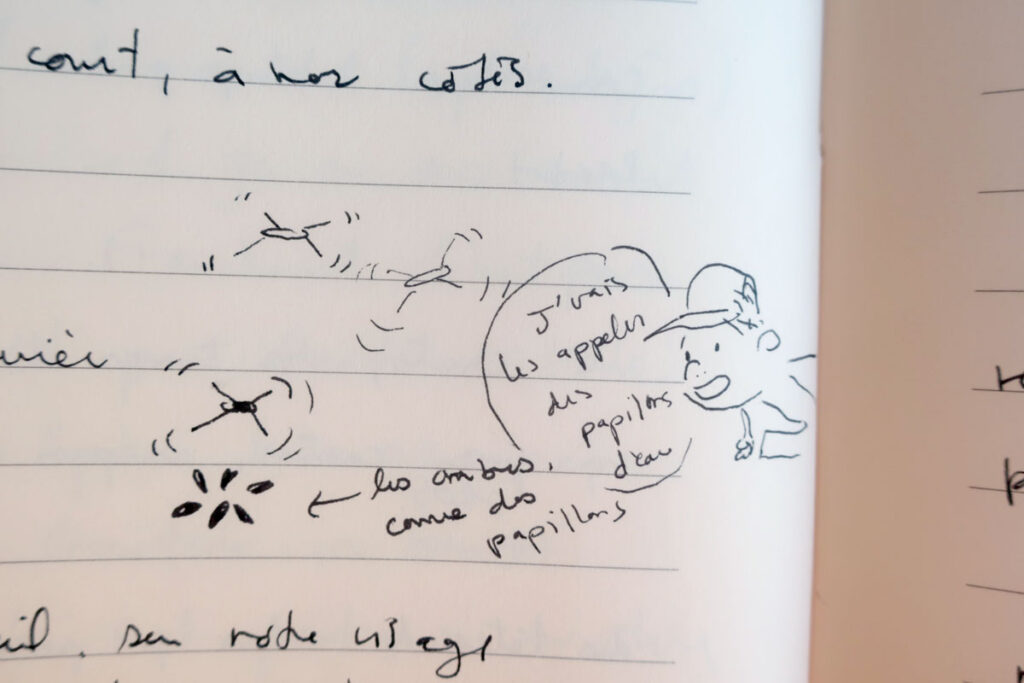 court, à nos côtés.
J'vais
les appeler
des
papillons
d'eau
les ombres,
comme des
papillons
sur notre visage